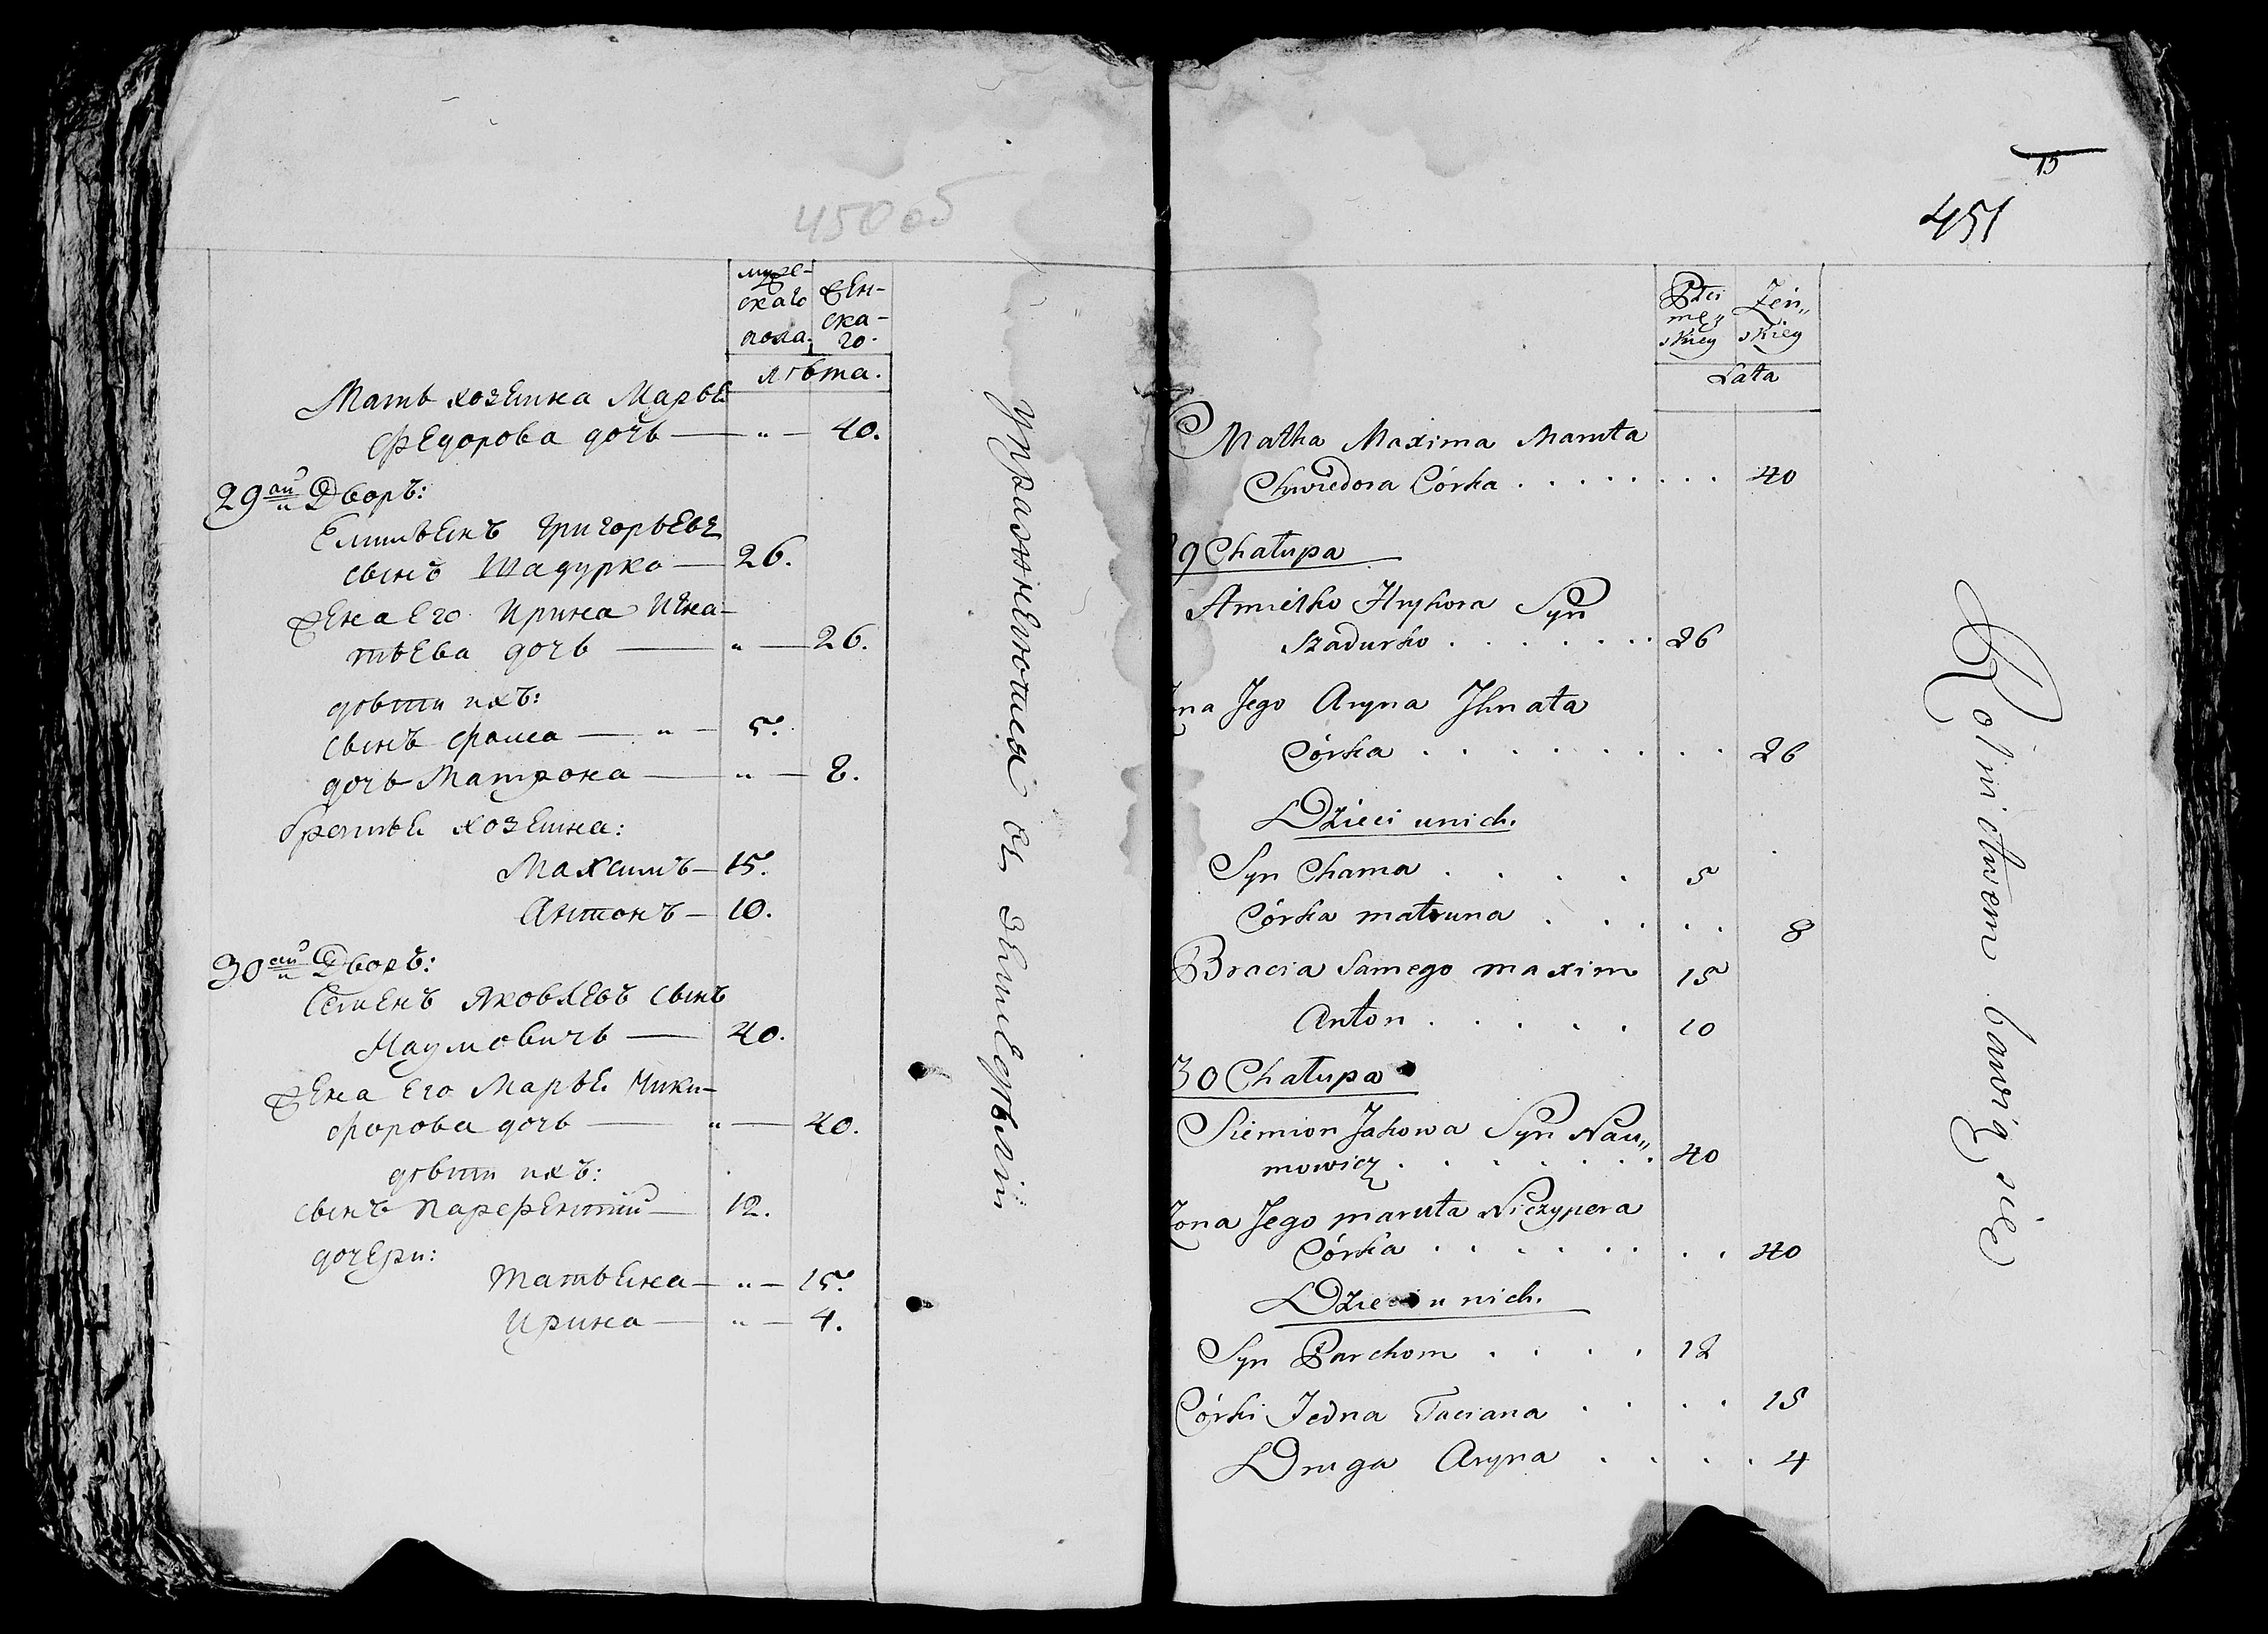 450 об
муже-
скаго
пола.
жен-
ска-
го.
лѣта.
Мать хозяина Марья
Федорова дочь — „ — 40.
29ый Дворъ:
Емильянъ Григорьевъ
сынъ Шадурко — 26.
Жена его Ирина Игна-
тьева дочь — „ — 26.
дѣти ихъ:
сынъ Фома — „ — 5.
дочь Матрона — „ — 8.
братья хозяина:
Максимъ — 15.
Антонъ — 10.
30ый Дворъ:
Семенъ Яковлевъ сынъ
Наумовичъ — 40.
Жена его Марья Ники-
форова дочь — „ — 40.
дѣти ихъ:
сынъ Парфентий — 12.
дочери:
Татьяна — „ — 15.
Ирина — „ — 4.
Упражняются въ земледѣлии
15
451
Płci
mę„
skiey
Żeń„
skiey
Lata
Matka Maxima Maruta
Chwiedora Córka . . . . . . . . 40
9 Chałupa
Amielko Hryhora Syn
Szadurko . . . . . . . 26
ona Jego Aryna Ihnata
Córka . . . . . . . . 26
Dzieci unich.
Syn Chama . . . . 5
Córka matruna . . . . . 8
Bracia Samego maxim 15
Anton . . . . . 10
30 Chałupa
Siemion Jakowa Syn Nau„
mowicz . . . . . . . 40
Zona Jego maruta Niczypera
Córka . . . . . . . . 40
Dzieci u nich.
Syn Parchom . . . . 12
Córki Jedna Taciana . . . . 15
Druga Aryna . . . . 4
Rolnictwem bawią się